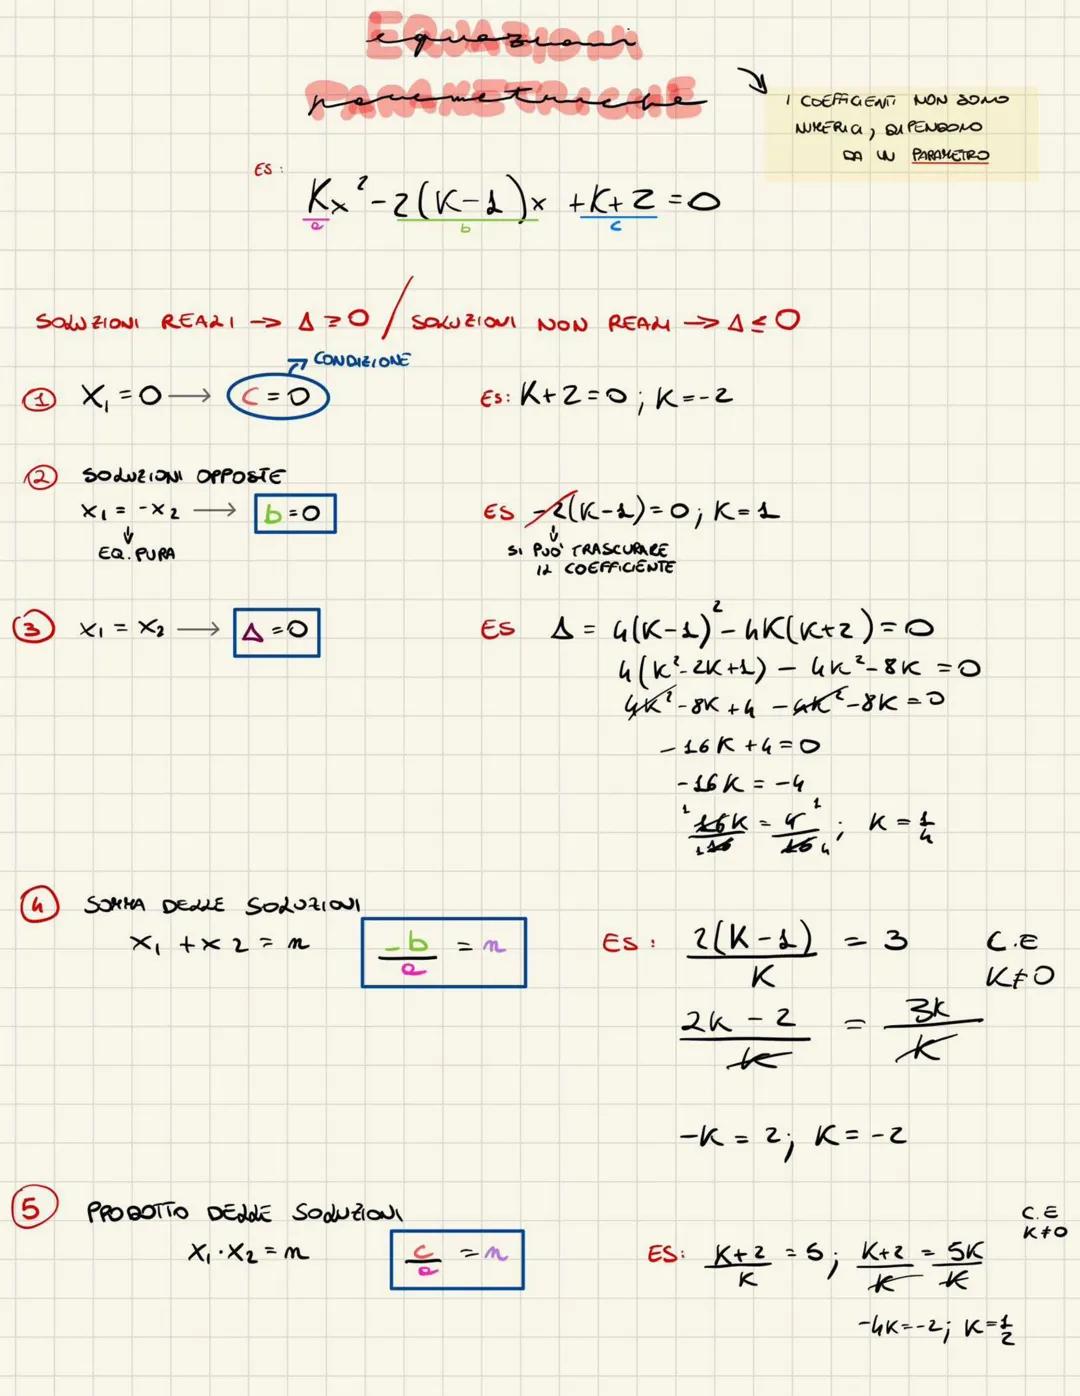 EQUAZIONI
equazioni
PARAMETRICHE
parametriche
I COEFFICIENTI NON SONO
NUMERICI, DIPENDONO
DA UN PARAMETRO
ES:
Kx²-2(K-1)x+K+2=0
a b c
SOLUZIONI REALI → Δ≥0 / SOLUZIONI NON REALI → Δ≤0
CONDIZIONE
1 X₁=0 → C=0 ES: K+2=0; K=-2
2 SOLUZIONI OPPOSTE
X₁=-X₂ → b=0 ES -2(K-1)=0; K=1
EQ.PURA SI PUO' TRASCURARE
IL COEFFICIENTE
3 X₁=X₂ → Δ=0 ES Δ=4(K-1)²-4K(K+2)=0
4(K²-2K+1)-4K²-8K=0
4K²-8K+4-4K²-8K=0
-16K+4=0
-16K=-4
16K/16=4/16; K=1/4
4 SOMMA DELLE SOLUZIONI
X₁+X2=n -b/a=n ES: 2(K-1)/K=3 C.E
K≠0
2K-2/K=3K/K
-K=2; K=-2
5 PRODOTTO DELLE SOLUZIONI
C.E
K≠0
X₁·X₂=n c/a=n ES: K+2/K=5; K+2/K=5K/K
-4K=-2; K=1/2